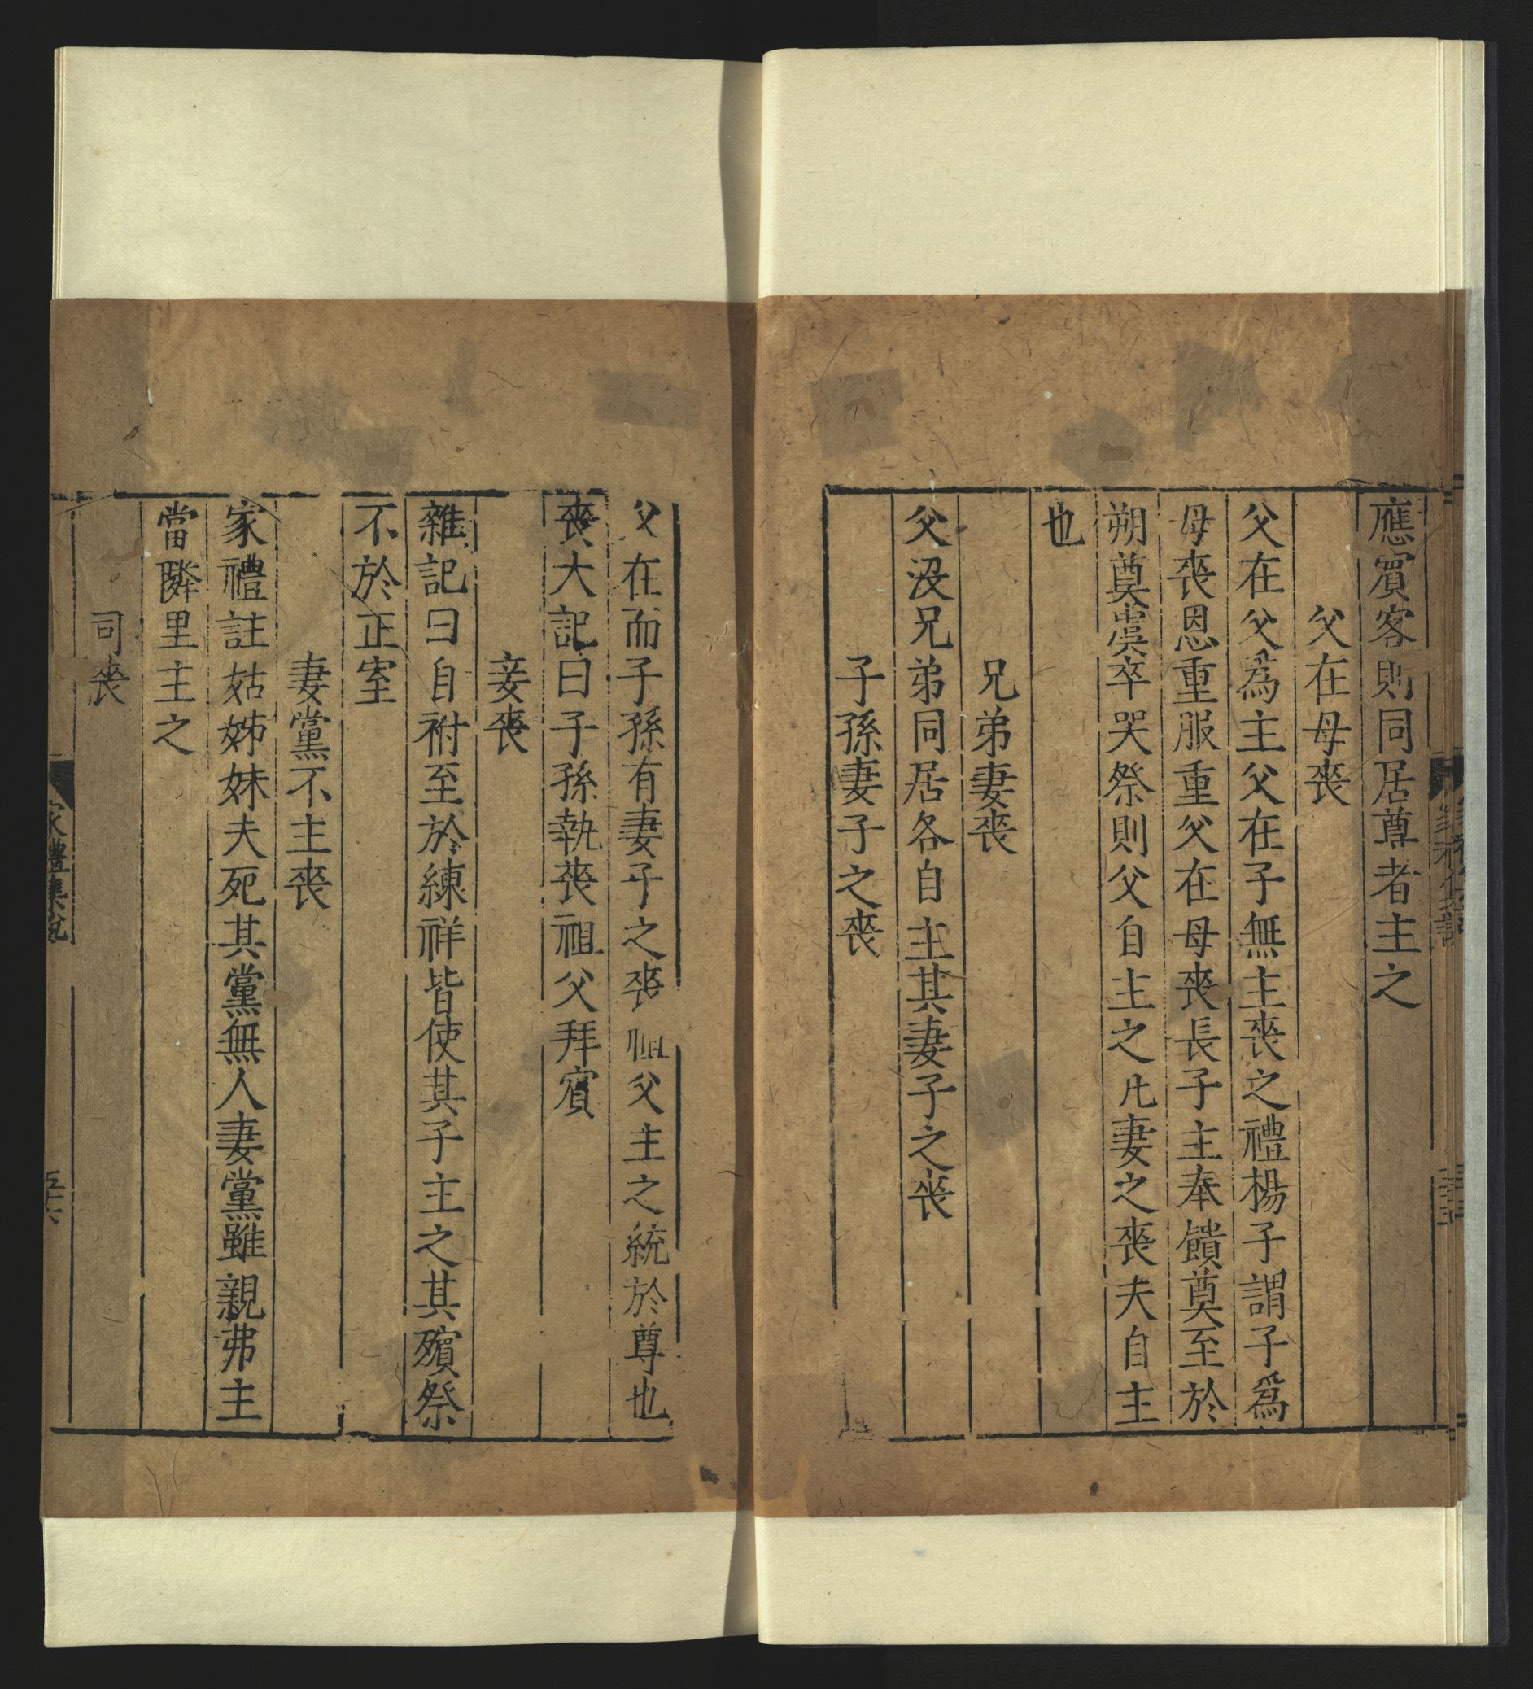 應賔客則同居尊者主之
父在母喪
父在父爲主父在子無主喪之禮楊子謂子爲
母喪恩重服重父在母喪長子主奉饋奠至於
朔奠虞卒哭祭則父自主之凡妻之喪夫自主
也
兄弟妻喪
父沒兄弟同居各自主其妻子之喪
子孫妻子之喪
父在而子孫有妻子之喪祖父主之統於尊也
喪大記曰子孫執喪祖父拜賔
妾喪
雜記曰自祔至於練祥皆使其子主之其殯祭
不於正室
妻黨不主喪
家禮註姑姊妹夫死其黨無人妻黨雖親弗主
當隣里主之
司喪
家禮集說